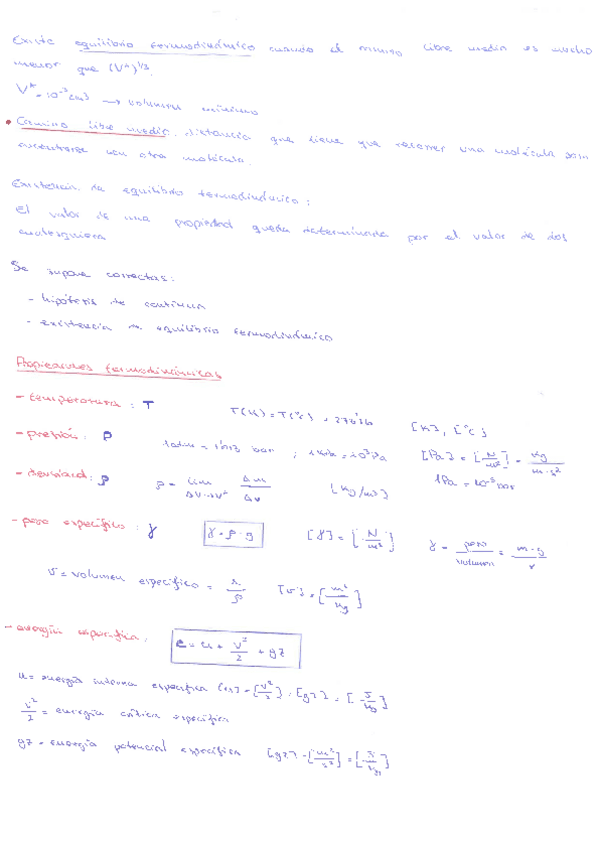 Existe equilibrio termodinámico cuando el camino libre medio es mucho
menor que (V*)^1/3.
V* = 10^-9 cm³ → volumen mínimo
• Camino libre medio: distancia que tiene que recorrer una molécula para
encontrarse con otra molécula.
Existencia de equilibrio termodinámico:
el valor de una propiedad queda determinada por el valor de dos
cualesquiera
Se supone correctas:
- hipótesis de continuo
- existencia de equilibrio termodinámico
Propiedades termodinámicas
- temperatura: T T(K) = T(°C) + 273'15 [K], [°C]
- presión: P 1atm = 1013 bar ; [Pa] = [N/m²] = kg/m·s²
1Pa = 10^-5 bar
- densidad: ρ ρ = lim ΔV→V* Δm/ΔV [kg/m³]
- peso específico: γ γ = ρ·g [γ] = [N/m³] γ = peso/volumen = m·g/v
v = volumen específico = 1/ρ [v] = [m³/kg]
- energía específica: e = u + v²/2 + gz
u = energía interna específica [u] = [v²/2] = [gz] = [J/kg]
v²/2 = energía cinética específica
gz = energía potencial específica [gz] = [m²/s²] = [J/kg]